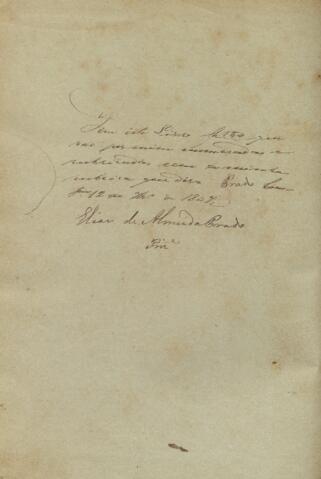 Tem este Livro
são por mim enumeradas e
rubricadas com a minha
rubrica que diz Prado
12 de de
Elias de Almeida Prado